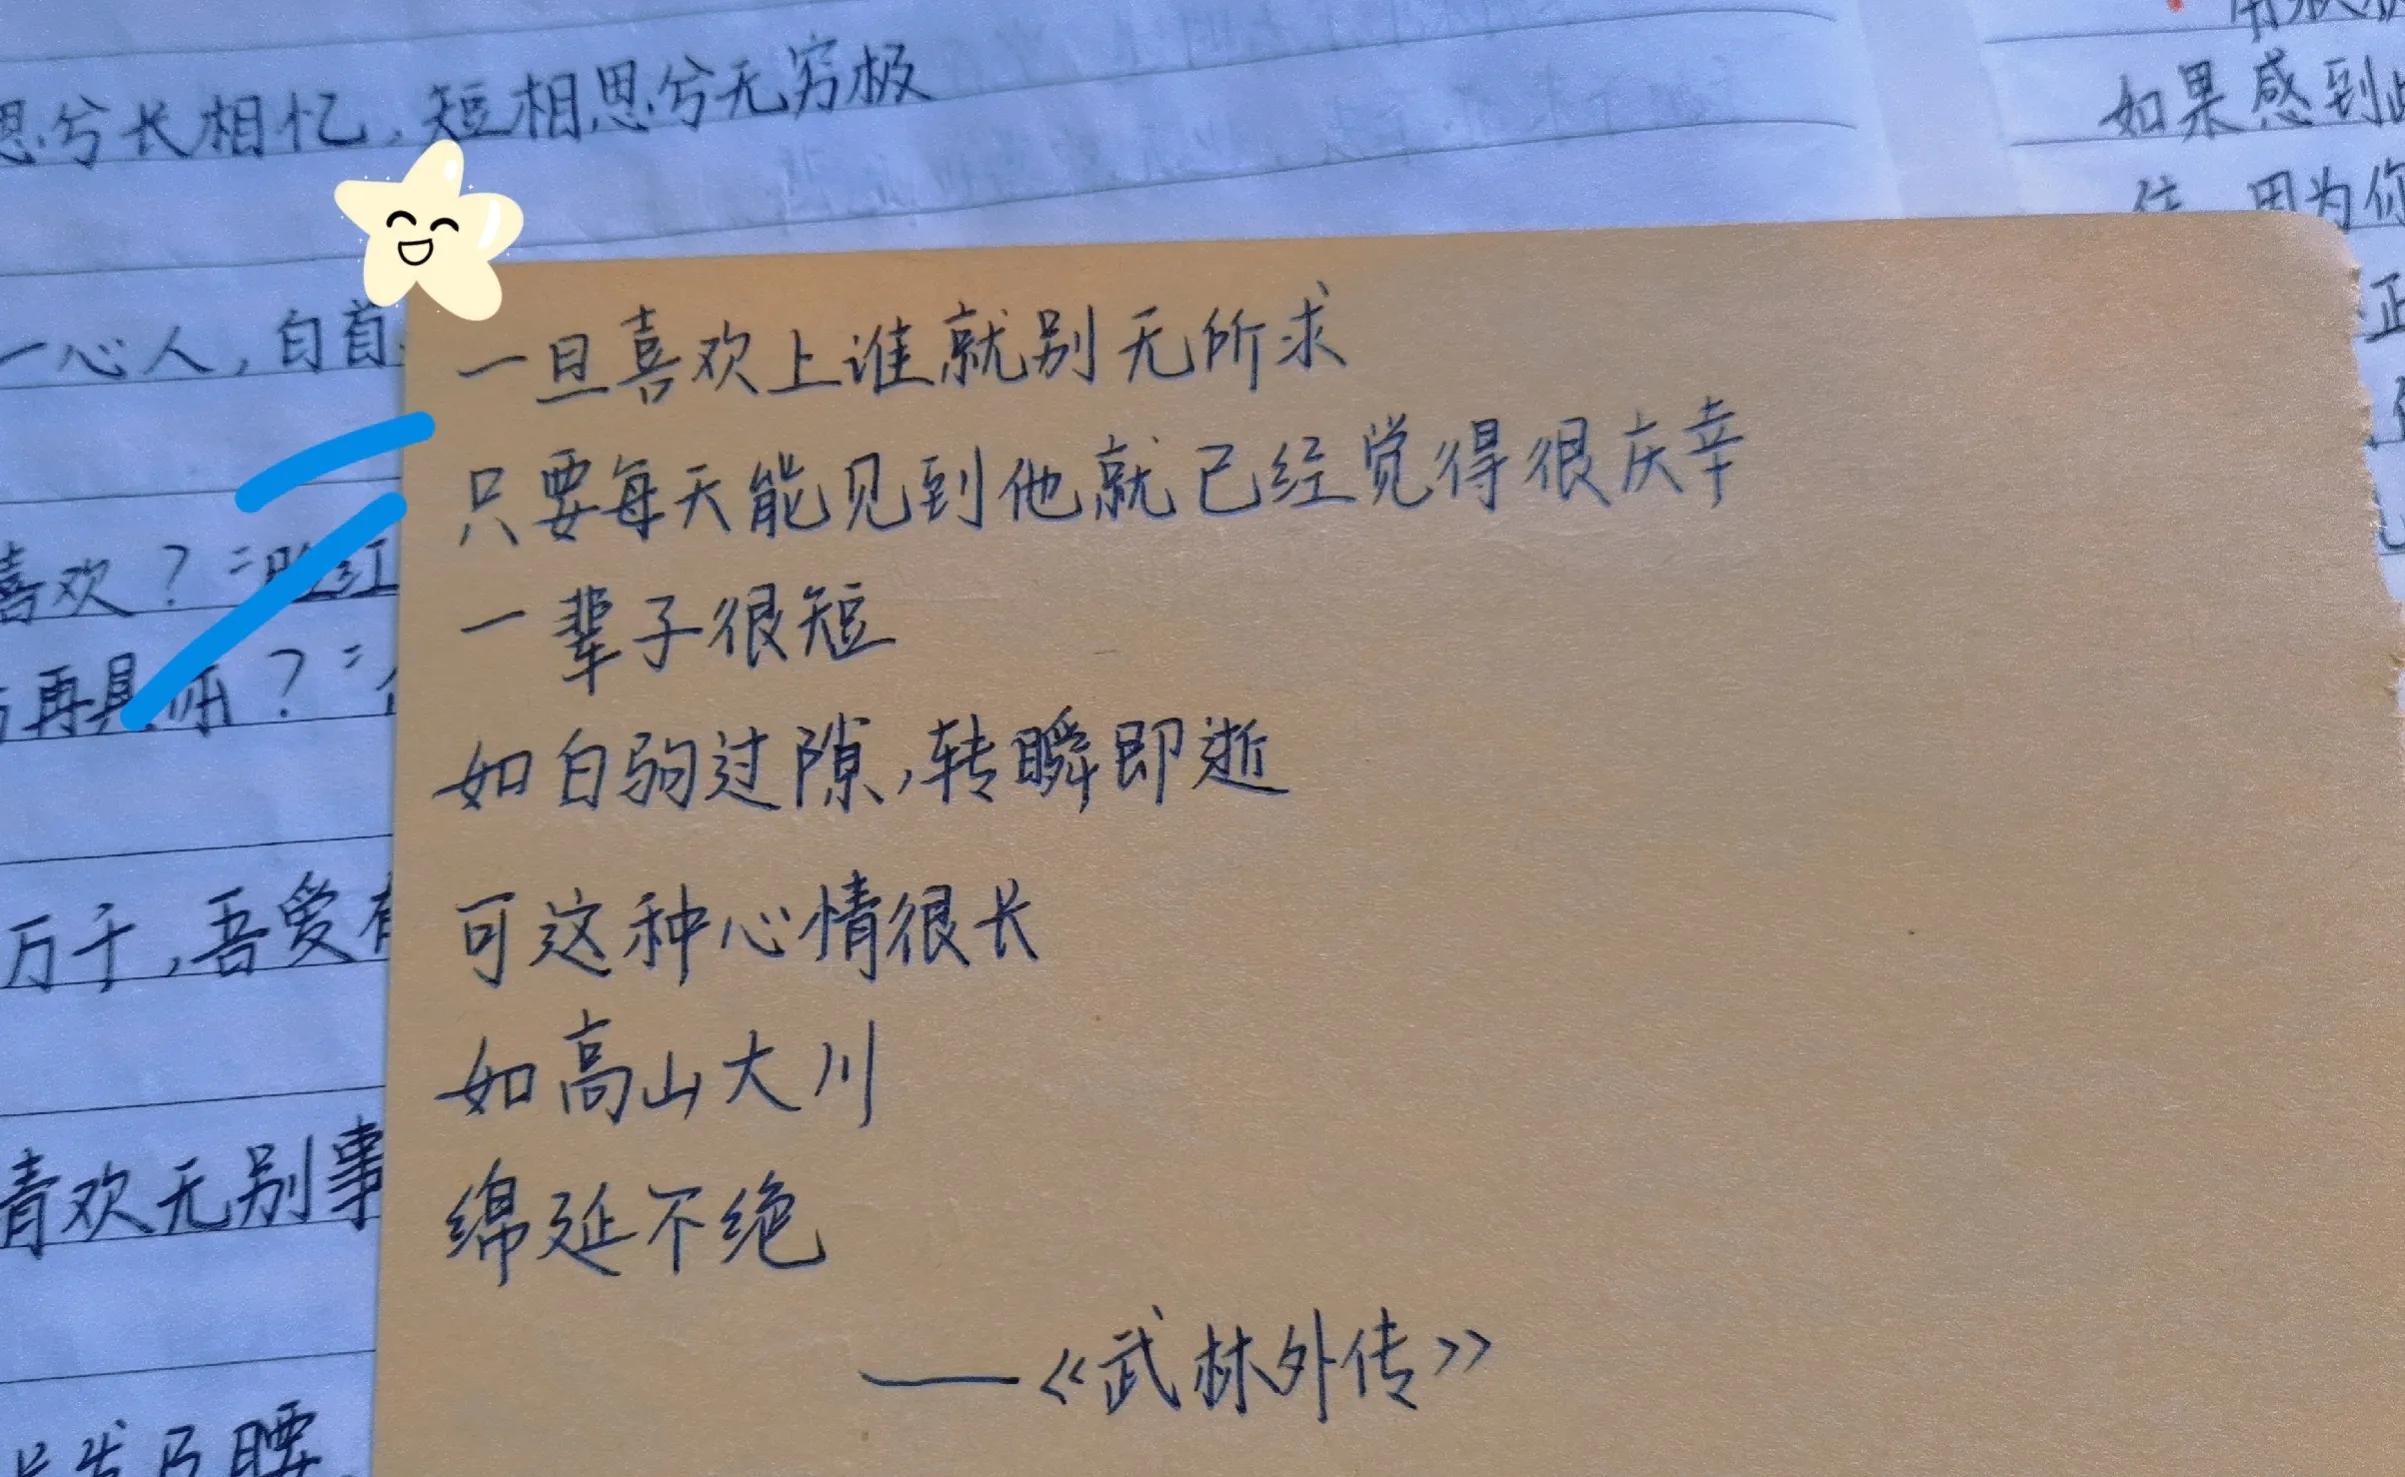 思兮长相忆,短相思兮无穷极
一心人,白首
喜欢?=脸红
再见你?=
万千,吾爱有
清欢无别事
如果感到
因为你
一旦喜欢上谁就别无所求
只要每天能见到他就已经觉得很庆幸
一辈子很短
如白驹过隙,转瞬即逝
可这种心情很长
如高山大川
绵延不绝
——《武林外传》